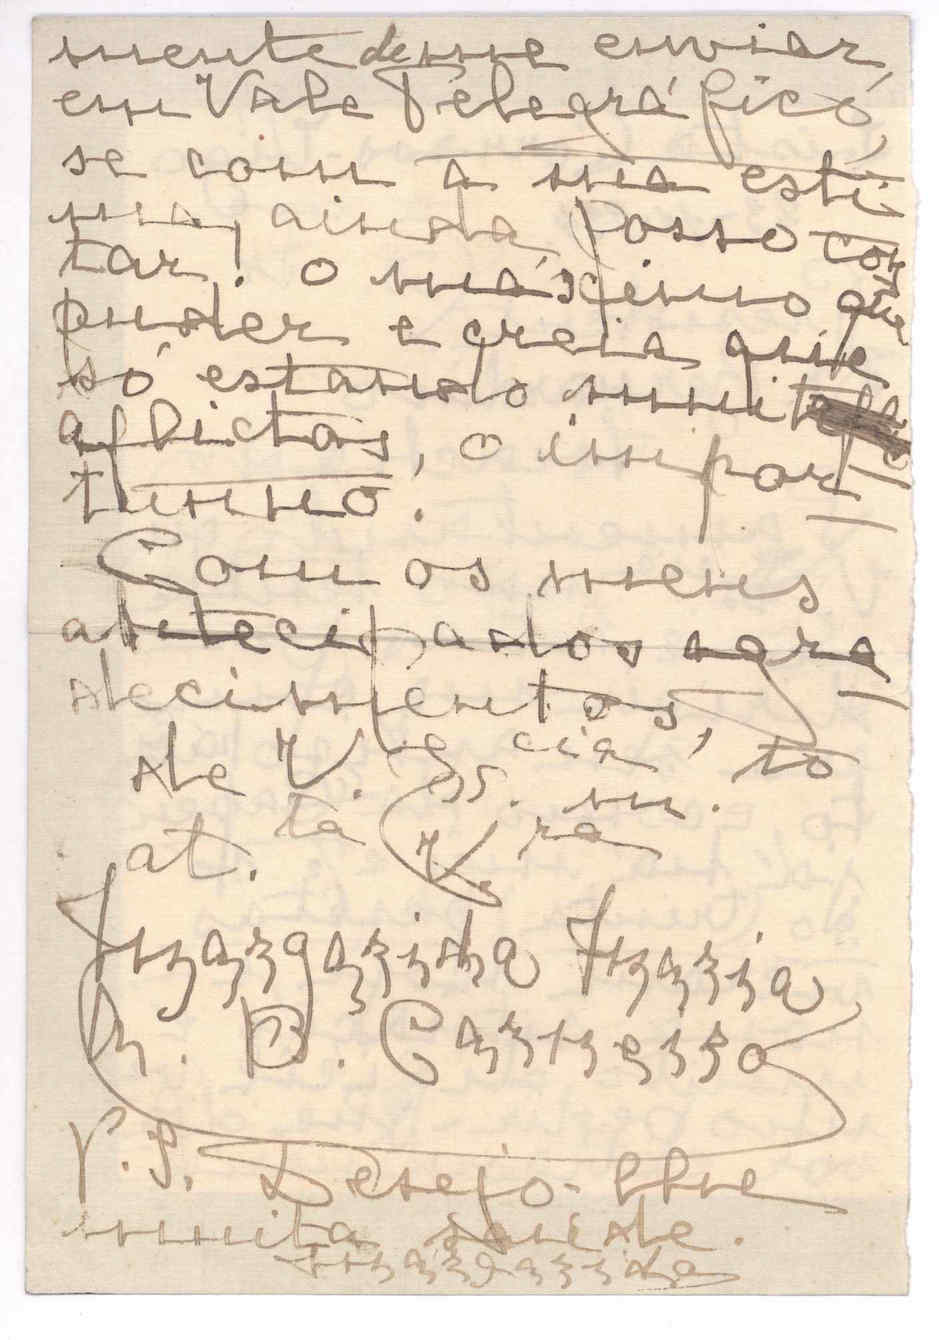 mente de me enviar
em Vale Telegráfico,
se com a sua esti-
ma, ainda posso con-
tar! o máximo que
puder e creia que
só estando muito
aflictas, o impor-
tunno.
Com os meus
antecipados agra-
decimentos,
de V. Ex.cia, m.to
at.ta V.ra
Margarida Maria
B. Carneiro
P.S. Desejo-lhe
muita saúde.
Margarida